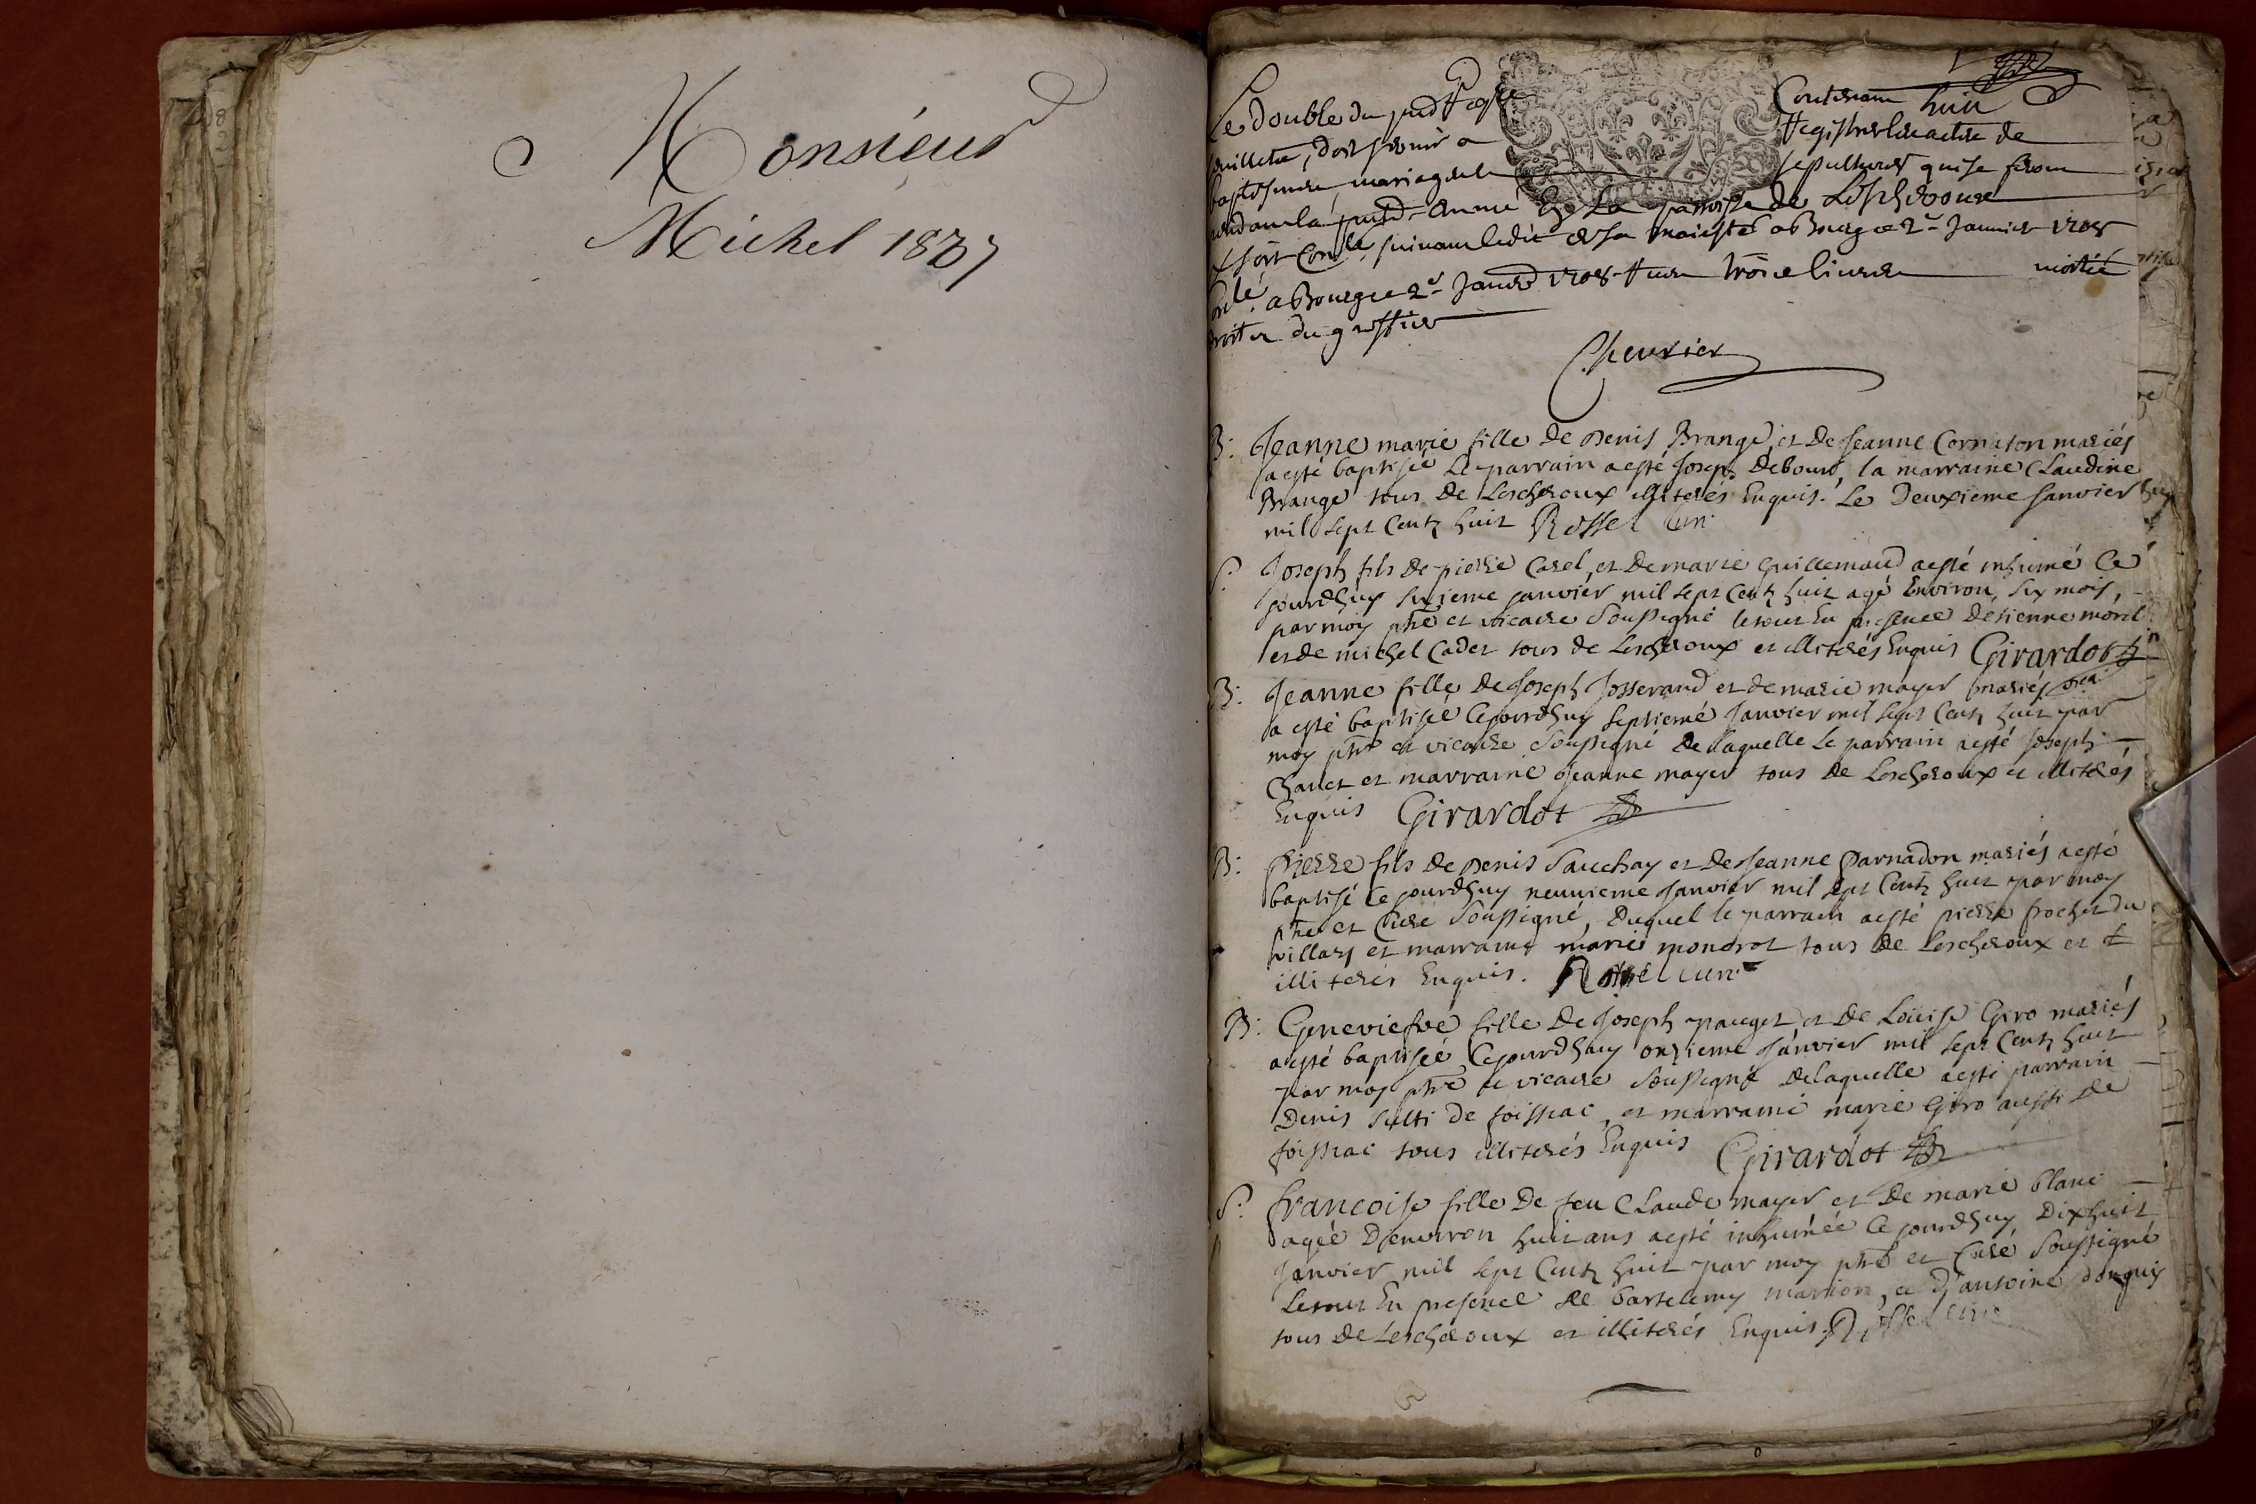 Monsieur
Michel 1837
Le double du Contenant huit
feuillets, doit servir a Registrer les actes de
baptesmes mariages et sepultures qui se feront
pendant la pnte année En La parroisse de Lescheroux
suivant ledit de sa maiesté a Bourg ce 2e Janvier 1708
a Bourg ce 2e Janvr 1708 trois livres moitié
droits du greffier
Chevrier
B: Jeanne marie fille de Denis Brange, et de Jeanne Cornaton mariés
a esté baptisée Le parrain a esté Joseph Debourg, la marraine Claudine
Brange tous de Lescheroux illiterés Enquis. Le Deuxieme Janvier
mil sept Centz huit Rossel Cur.
S: Joseph fils de pierre Carel, et de marie Guillemaud a esté inhumé Ce
jourdhuy sixieme janvier mil sept Centz huit agé Environ six mois,
par moy ptre et vicaire Soussigné le tout En presence detienne morel
et de michel Cadet tous de Lescheroux et illiterés Enquis Girardot
B: Jeanne fille de Joseph Josserand et de marie mayer mariés
a esté baptisée Cejourdhuy septieme Janvier mil sept Centz huit par
moy ptre et vicaire Soussigné de laquelle Le parrain a esté Joseph
Chanet et marraine Jeanne mayer tous de Lescheroux et illiterés
Enquis Girardot
B: Pierre fils de Denis Sauchay et de Jeanne Parnadon mariés a esté
baptisé Ce jourdhuy neuvieme Janvier mil sept Centz huit par moy
ptre et Curé Soussigné, duquel le parrain a esté pierre frochet du
villars et marraine marie mondrot tous de Lescheroux et
illiterés Enquis. Rossel cur.
B: Geneviefve fille de Joseph pauget, et de Louise Giro mariés
a esté baptisée, Cejourdhuy onzieme Janvier mil sept Centz huit
par moy ptre et vicaire Soussigné de laquelle a esté parrain
Denis de foissiac, et marraine marie Giro aussi de
foissiac tous illiterés Enquis Girardot
S: francoise fille de feu Claude mayer et de marie blanc
agée d'environ huit ans a esté inhumée Ce jourdhuy, dixhuit
Janvier mil sept Centz huit par moy ptre et Curé Soussigné
Letout En presence de bartelemy marion, et d'antoine donguis
tous de Lescheroux et illiterés Enquis. Rossel cur